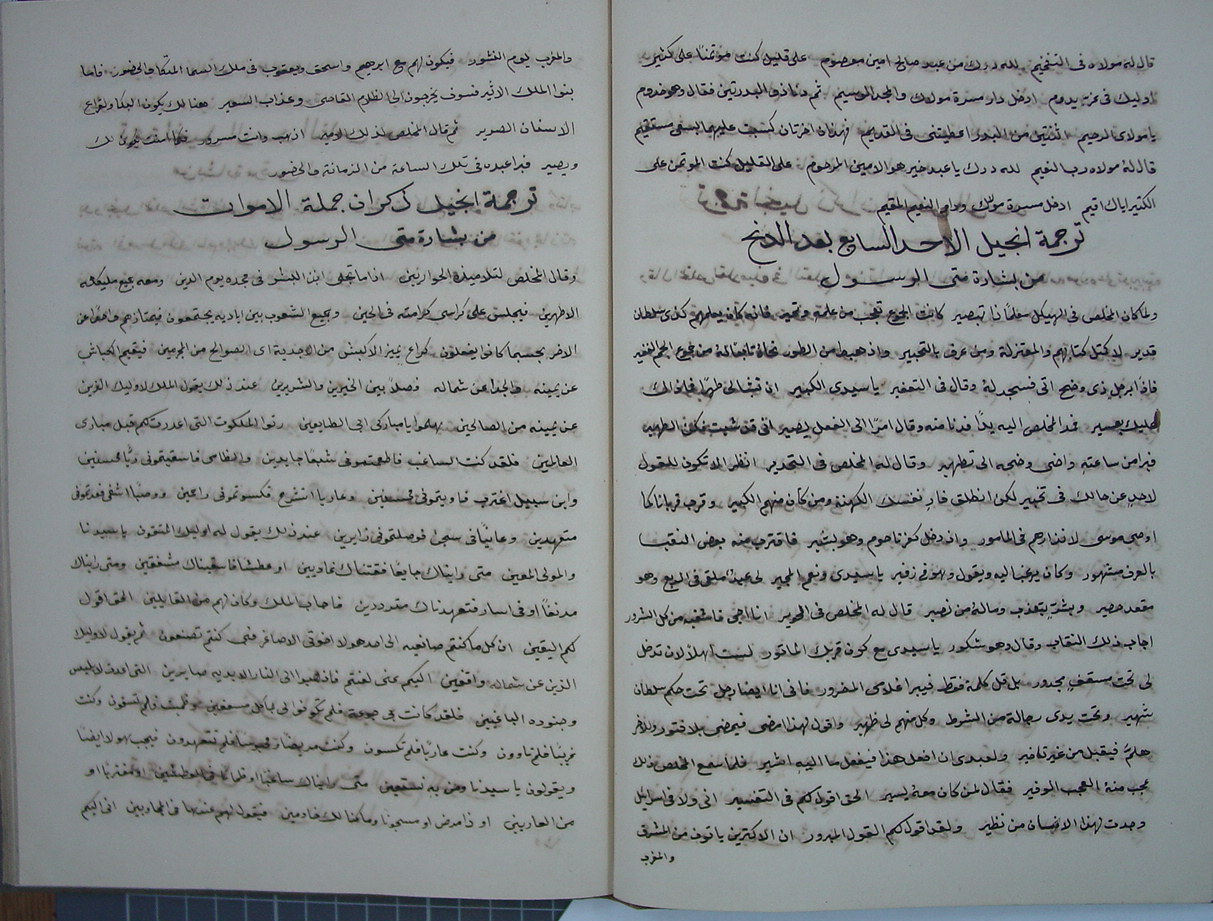 قال له مولاه فى التفخيم لله درك من عبد صالح امين معصوم على قليل كنت مؤتمنا على كثير
اوليك فى عز يدوم ادخل دار مسرة مولاك والمجد الوسيم ثم دنا ذو البدرتين فقال وهو خدوم
يا مولاى الرحيم ثنتين من البدر اعطيتنى فى القديم فهذان اخرتان كسبت عليهما بسعى مستقيم
قال له مولاه رب النعيم لله درك يا عبد خير هو الامين المرحوم على القليل كنت المؤتمن على
الكثير اياك اقيم ادخل مسرة مولاك ودار النعيم المقيم
ترجمة انجيل الاحد السابع بعد الدنح
من بشارة متى الرسول
ولما كان المخلص فى الهيكل معلما ذا تبصير كانت الجموع تعجب من علمه وتحير فانه كان يعلمهم كذى سلطان
قدير لا كمثل كتابهم والمعتزلة ومن عرف بالتحبير واذ هبط من الطور نحاه تابعا له من جموع الجم الغفير
فاذا ابرجل ذى وضح اتى فسجد له وقال فى التعفير يا سيدى الكبير ان تشا لى طهرا فما ذلك
عليك بعسير فمد المخلص اليه يدا فدنا منه وقال امرا الى الفعل يصير انى قد شيت فكن الطهير
فبرا من ساعته واضى وضحه الى تطهير وقال له المخلص فى التحذير انظر الا تكون للقول
لاحد عن حالك فى تخبير لكن انطلق فار نفسك الكهنة ومن كان منهم الكبير وقرب قربانا كما
اوصى موسى لانذارهم فى المامور واذ دخل كفرناحوم وهو بشير فاقترب منه بعض النقبا
بالعرف مشهور وكان يرغب اليه ويقول وهو فى زفير يا سيدى ونعم المجير لى عبد ملقى فى الربع وهو
مقعد حصير وبشدة يتعذب وما له من نصير قال له المخلص فى التحوير انا اجى فاشفيه من كل الشرور
اجاب ذلك النقاب وقال وهو شكور يا سيدى مع كون قربك الماثور لست اهلا لان تدخل
لى تحت مستقف مجدور بل قل كلمة فقط فيبرا غلامى المضرور فانى انا ايضا رجل تحت حكم سلطان
شهير وتحت يدى رجالة من الشرط وكل منهم لى ظهير واقول لهذا امضى فيمضى بلا فتور وللاخر
هلم فيقبل من غير تاخير ولعبدى ان افعل هذا فيفعل ما اليه اشير فلما سمع المخلص ذلك
عجب منه العجب الوفير فقال لمن كان معه يسير الحق اقول لكم فى التفسير انى ولا فى اسرايل
وجدت لهذا الايمان من نظير ولقد اقول لكم القول المبرور ان الاكثرين ياتون من المشرق
والمغرب
والمغرب يوم النشور فيكون لهم مع ابرهيم واسحق ويعقوب فى ملك السما المتكا والحضور فاما
بنوا الملك الاثير فسوف يخرجون الى الظلام القاصى وعذاب السعير هنالك يكون البكا وقراع
الاسنان الصرير ثم قال المخلص لذلك الامير اذهب وانت مسرور فكما امنت يكون لك
ويصير فبرا عبده فى تلك الساعة من الزمانة والحضور
ترجمة انجيل ذكران جملة الاموات
من بشارة متى الرسول
وقال المخلص لتلاميذه الحواريين اذا ما تجلى ابن البشر فى مجده يوم الدين ومعه جميع مليكته
الاطهرين فيجلس على كراسى كرامته فى الحين وجميع الشعوب بين اياديه يجتمعون فيمتازهم هامعا عن
الاخر بحسبما كانوا يفعلون كراع يميز الاكبش من الاجدية اى الصوالح من المجرمين فيقيم الكباش
عن يمينه والجدا عن شماله فصلا بين الخيرين والشريرين عند ذلك يقول الملك لاوليك الذين
عن يمينه من الصالحين هلموا يا مباركى ابى الطايعين رثوا الملكوت التى اعدت لكم قبل مبارى
العالمين فلقد كنت الساغب فاطعمتمونى شبعا جايدين والظامى فاسقيتمونى ريا محسنين
وابن سبيل اغترب فاويتمونى مسعفين وعاريا انشرح فكسوتمونى راحمين ووصبا اشفى فعدتمونى
متعهدين وعانيا فى سجن فوصلتمونى زايرين عند ذلك يقول له اوليك المتقون يا سيدنا
والمولى المعين متى رايناك جايعا فقتناك نحاويين او عطشانا سقيناك مشفقين ومتى رايناك
مدنفا او فى اسار فتعهدناك مفرددين فاجاب الملك وكان لهم من القايلين الحق اقول
لكم اليقين ان كل ما كنتم صانعيه الى احد هولا اخوتى الاصاغر فبى كنتم تصنعون ثم يقول لاوليك
الذين عن شماله واقفين اليكم عنى لعنتم فاذهبوا الى النار الابدية صايرين التى اعدت لابليس
وجنوده الباغيين فلقد كانت بى جوعة فلم تكونوا لى باكل مسعفين وظميت فلم تسقون وكنت
غريبا فلم تاوون وكنت عاريا فلم تكسون وكنت مريضا وحبيسا فلم تتعهدون فيجيب هولا ايضا
ويقولون يا سيدنا ومن به نستعين متى رايناك ساغبا او ظاميا فى العطشين او مغتربا او
من العاريين او ذا مرض او مسجونا وما كنا لك خادمين فيقول لهم عندها فى المجاوبين انى اليكم